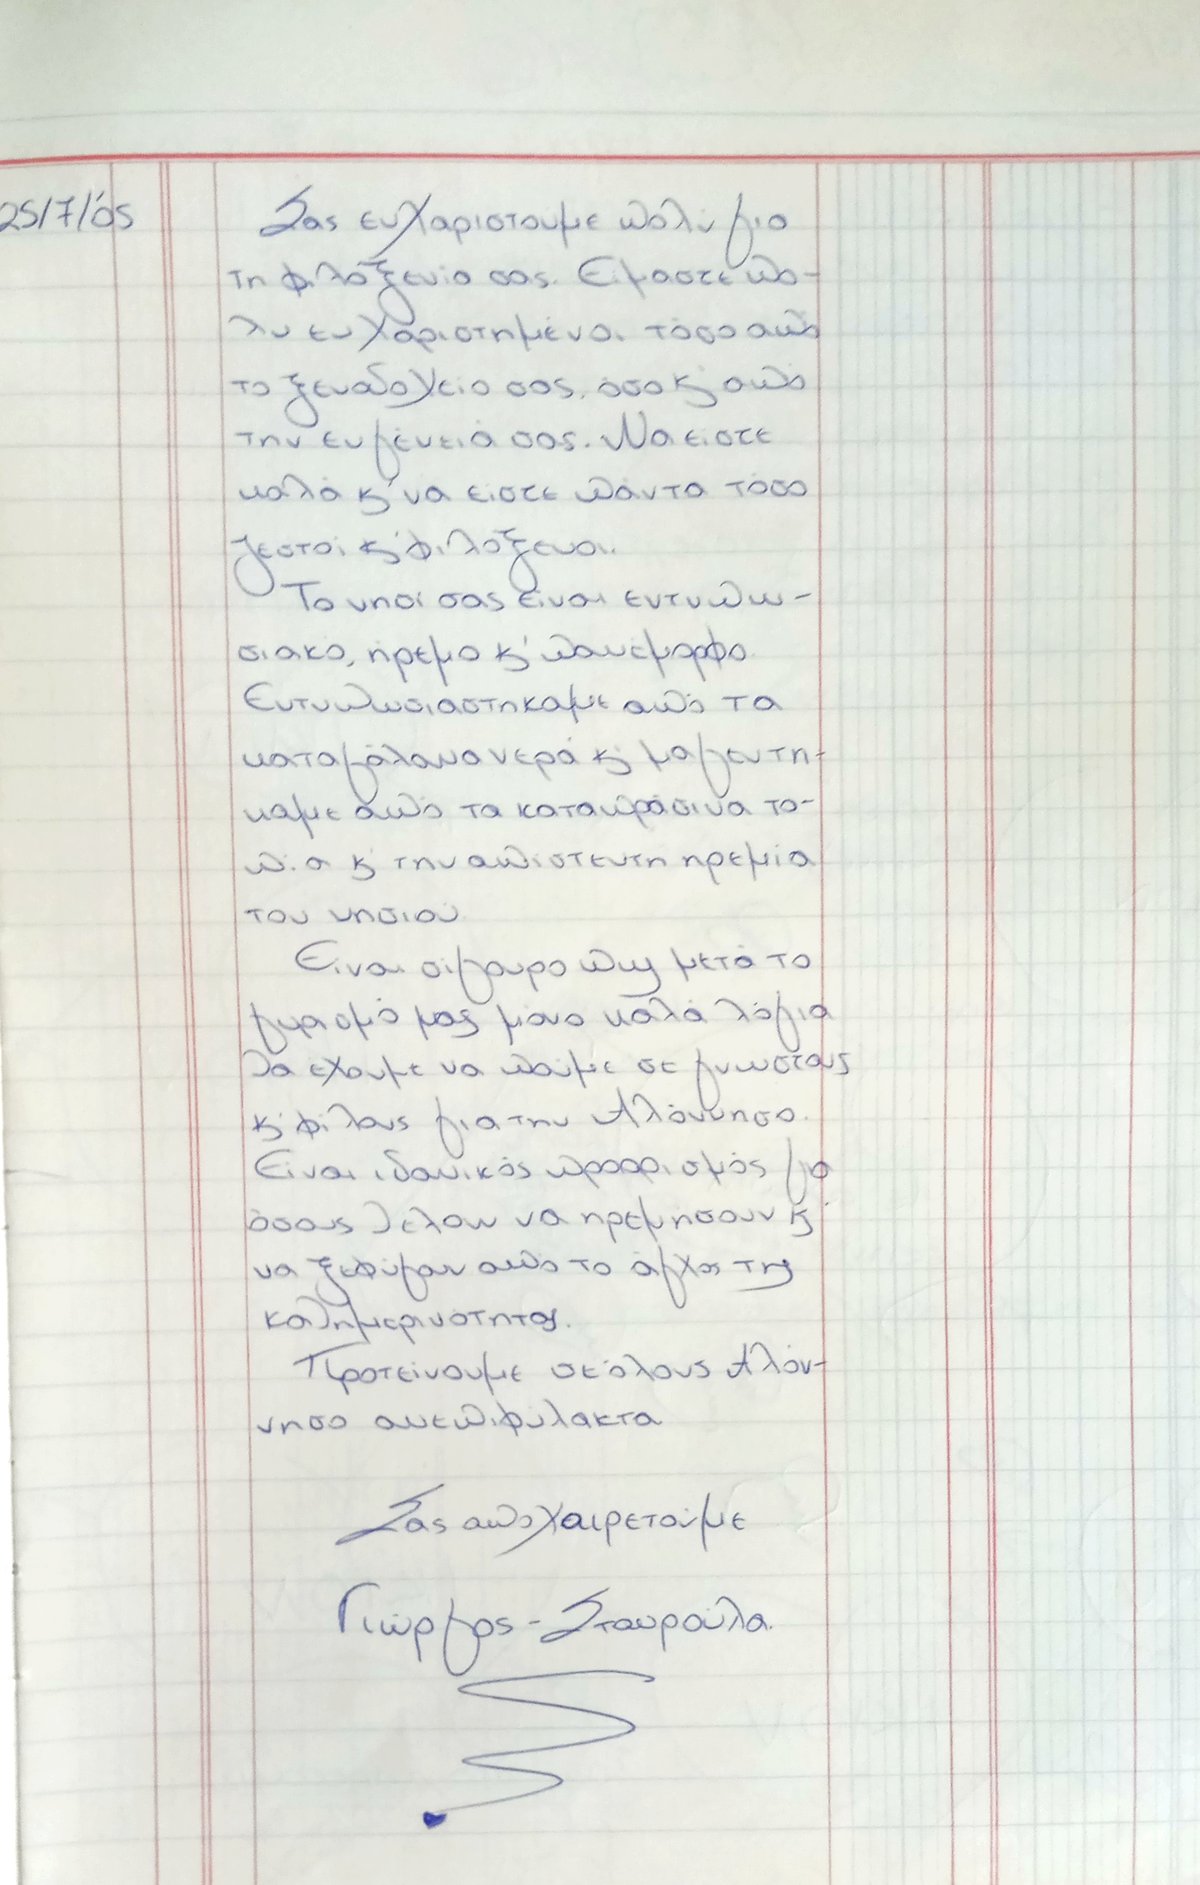 25/7/'05
Σας ευχαριστούμε πολύ για
τη φιλοξενία σας. Είμαστε πο-
λυ ευχαριστημένοι τόσο από
το ξενοδοχείο σας, όσο κ' από
την ευγένειά σας. Να είστε
καλά κ' να είστε πάντα τόσο
ζεστοί κ' φιλόξενοι.
Το νησί σας είναι εντυπω-
σιακό, ήρεμο κ' πανέμορφο.
Εντυπωσιαστήκαμε από τα
καταγάλανα νερά κ' μαγευτή-
καμε από τα καταπράσινα το-
πία κ' την απίστευτη ηρεμία
του νησιού.
Είναι σίγουρο πως μετά το
γυρισμό μας μόνο καλά λόγια
θα έχουμε να πούμε σε γνωστους
κ' φίλους για την Αλόννησο.
Είναι ιδανικός προορισμός για
όσους θέλουν να ηρεμήσουν κ'
να ξεφύγουν από το άγχος της
καθημερινότητας.
Προτείνουμε σε όλους Αλόν-
νησο ανεπιφύλακτα
Σας αποχαιρετούμε
Γιώργος - Σταυρούλα.